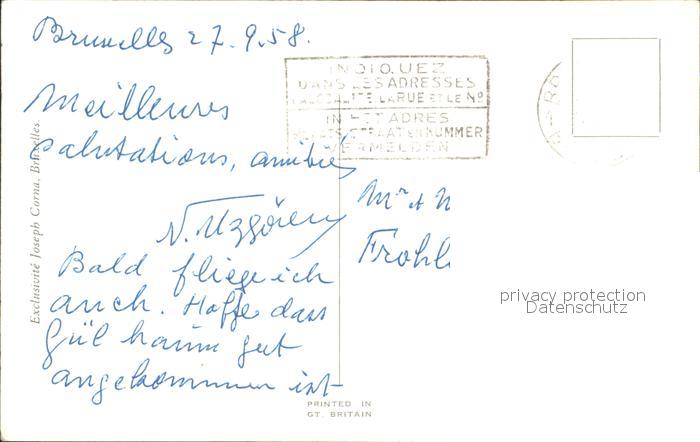 Bruxelles 27.9.58.
INDIQUEZ
DANS LES ADRESSES
LA LOCALITE LA RUE ET LE No
IN HET ADRES
PLAATS STRAAT EN NUMMER
VERMELDEN
Meilleures
salutations, amitiés
N. Uzgören
Bald fliege ich
auch. Hoffe dass
Gül hanım gut
angekommen ist
Mr et M
Frohl
Exclusivité Joseph Corna. Bruxelles.
privacy protection
Datenschutz
PRINTED IN
GT. BRITAIN